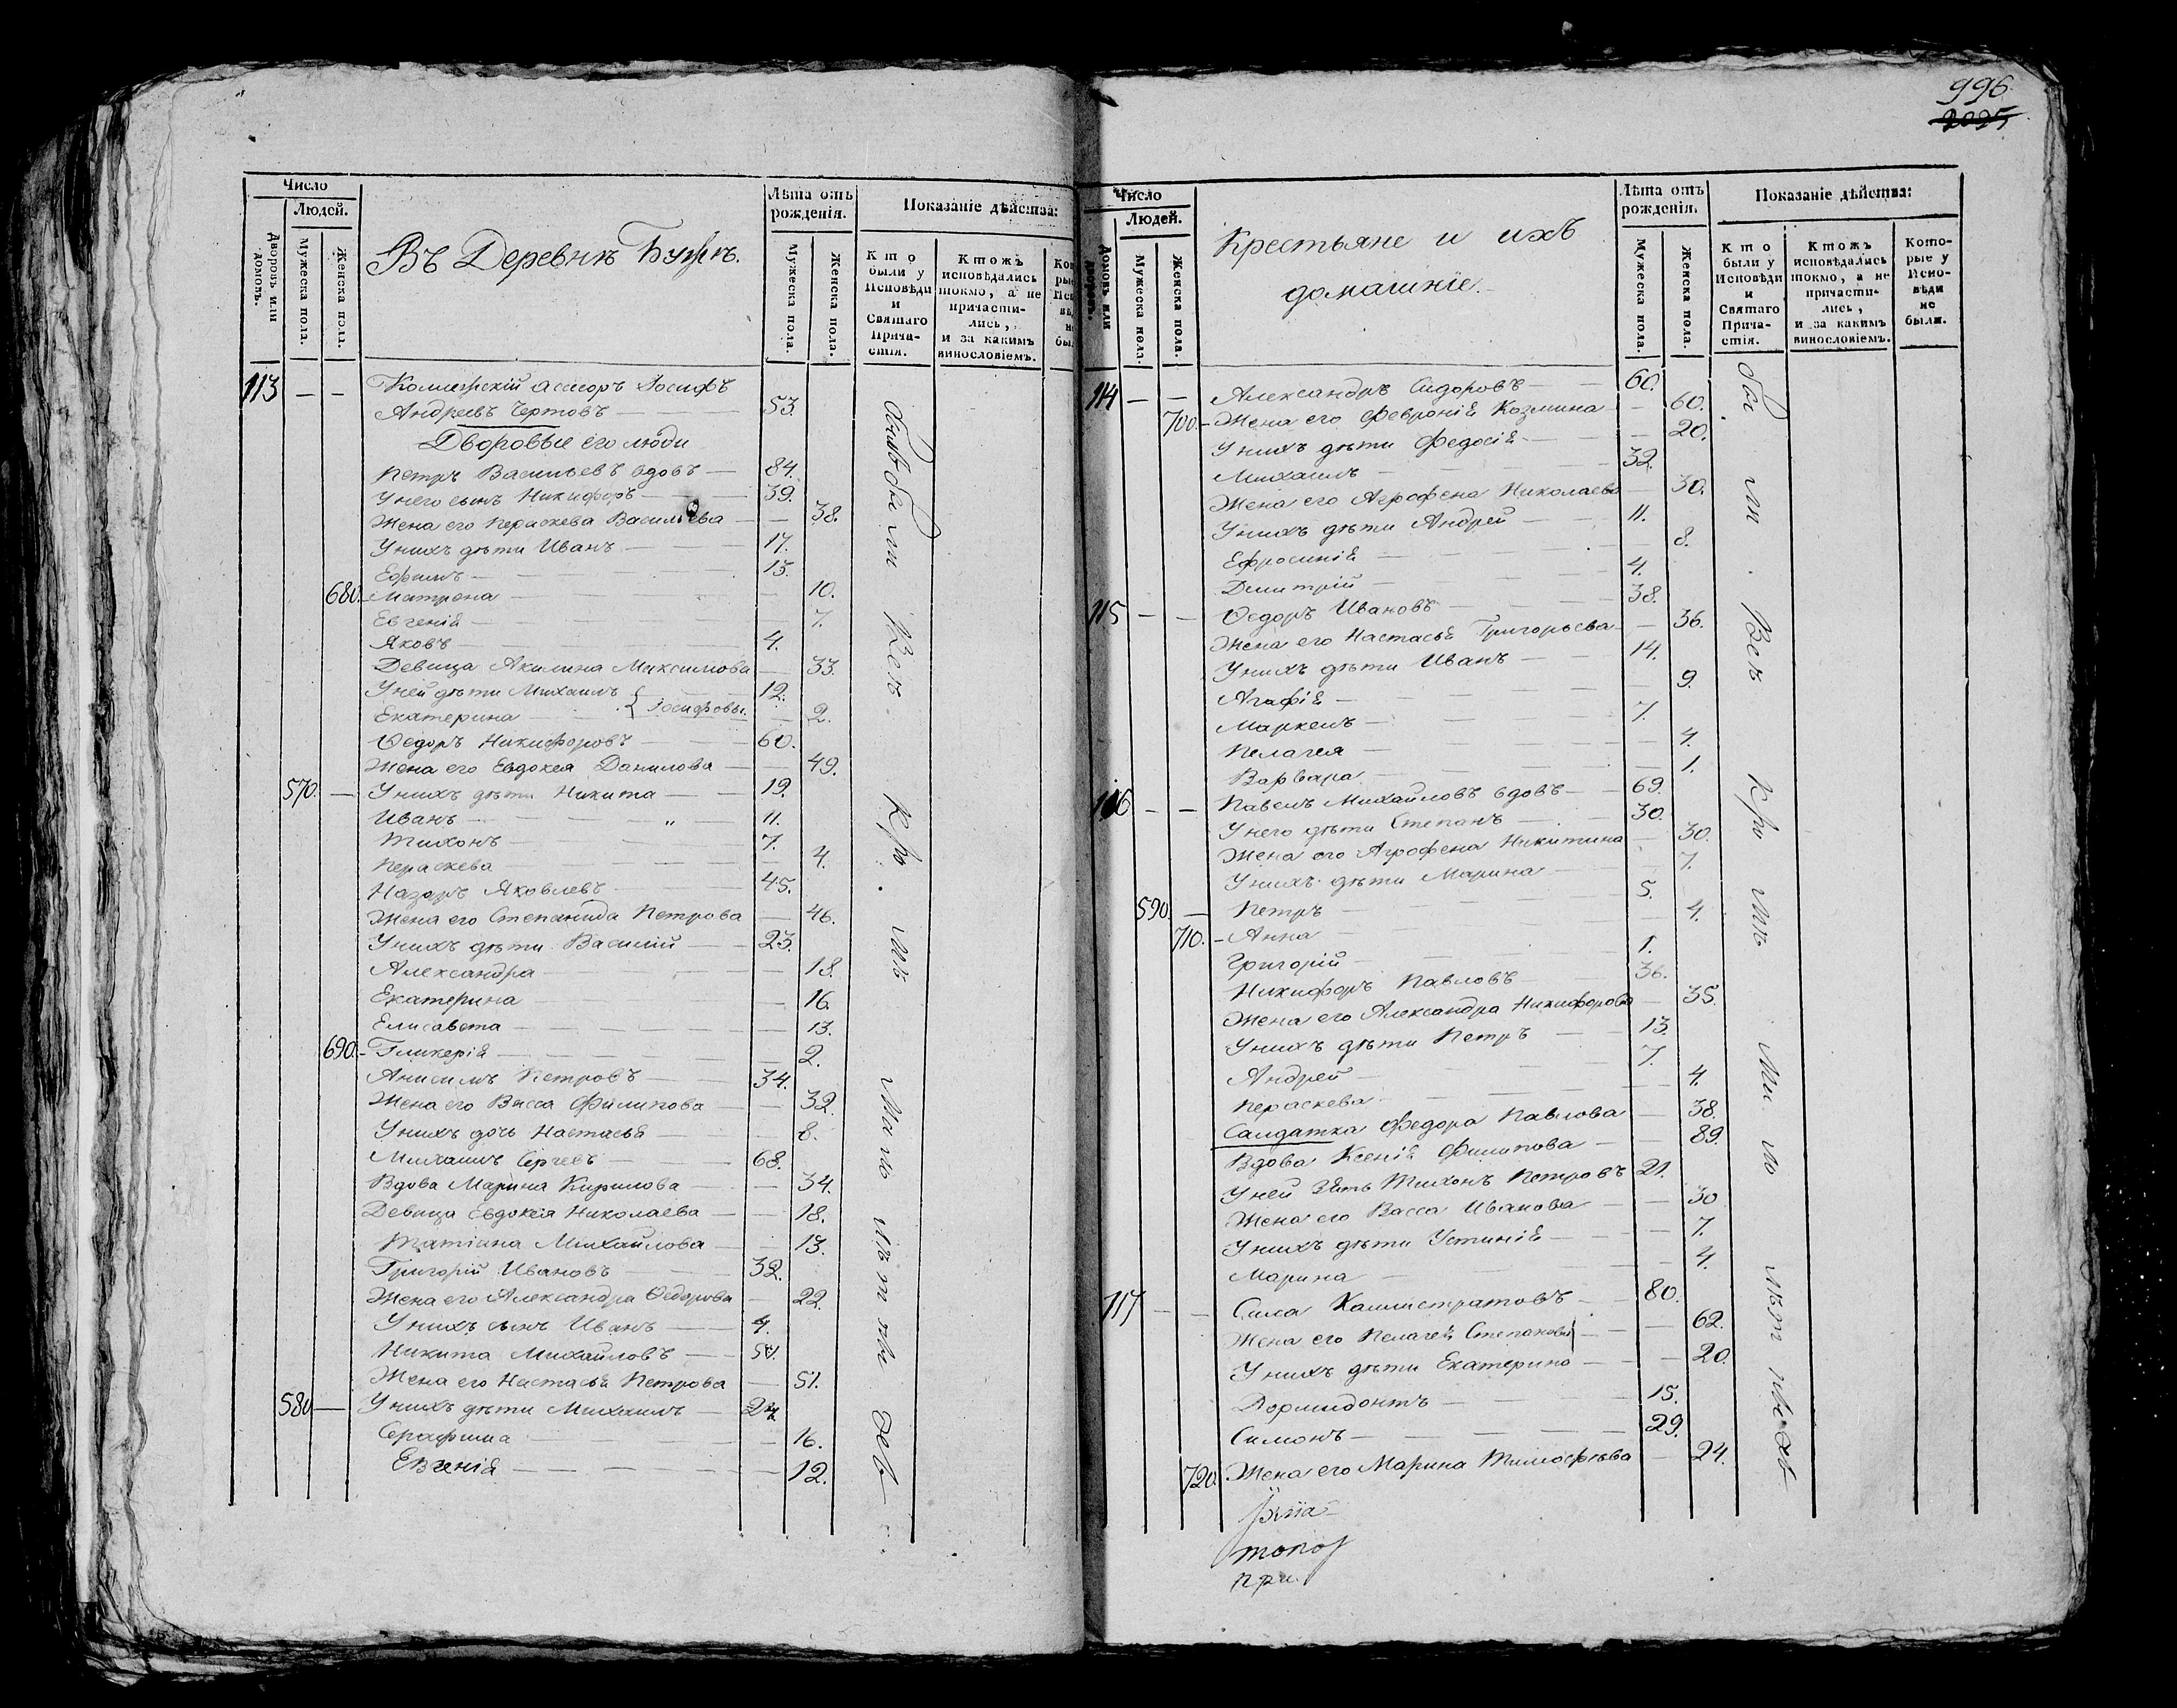 996
2025
Число
Людей.
Дворовъ или домовъ.
Мужеска пола.
Женска пола.
Въ Деревнѣ Бужѣ.
Лѣта отъ рожденія.
Мужеска пола.
Женска пола.
Показаніе дѣйства:
Кто были у Исповѣди и Святаго Прича-стія.
Ктожъ исповѣдались токмо, а не причасти-лись, и за какимъ винословіемъ.
113 — — Коллежскій асессоръ Іосифъ
Андреевъ Чертовъ — 53.
Дворовые его люди
Петръ Васильевъ вдовъ — 84.
У него сынъ Никифоръ — 39.
Жена его Пераскева Васильева — 38.
У нихъ дѣти Иванъ — 17.
Ефимъ — 13.
680. Матрона — 10.
Евгенія — 7.
Яковъ — 4.
Девица Акилина Максимова — 33.
У ней дѣти Михаилъ — 12.
Екатерина — Іосифовы. — 2.
Ѳедоръ Никифоровъ — 60.
Жена его Евдокея Данилова — 49.
570. — У нихъ дѣти Никита — 19.
Иванъ — 11.
Тихонъ — 7.
Пераскева 4.
Назаръ Яковлевъ — 45.
Жена его Степанида Петрова — 46.
У нихъ дѣти Василій — 23.
Александра — 18.
Екатерина — 16.
Елисавета — 13.
690. Гликерія — 2.
Анисимъ Петровъ — 34.
Жена его Васса Филипова — 32.
У нихъ дочь Настасья — 8.
Михаилъ Сергеевъ — 68.
Вдова Марина Кирилова — 34.
Девица Евдокея Николаева — 18.
Татіана Михайлова — 13.
Григорій Ивановъ — 32.
Жена его Александра Ѳедорова — 22.
У нихъ сынъ Иванъ — 4.
Никита Михайловъ —
Жена его Настасья Петрова — 51.
580 — У нихъ дѣти Михаилъ — 24.
Серафима — 16.
Евгенія — 12.
Число
Людей.
Домовъ или дворовъ.
Мужеска пола.
Женска пола.
Крестьяне и ихъ
домашніе.
Лѣта отъ рожденія.
Мужеска пола.
Женска пола.
Показаніе дѣйства:
Кто были у Исповѣди и Святаго Прича-стія.
Ктожъ исповѣдались токмо, а не причасти-лись, и за какимъ винословіемъ.
Кото-рые у Испо-вѣди не были.
114 — — Александръ Сидоровъ — 60.
700. Жена его Февронія Козмина — 60.
У нихъ дѣти Федосія — 20.
Михаилъ — 32.
Жена его Агрофена Николаева — 30.
У нихъ дѣти Андрей — 11.
Ефросинія — 8.
Дмитрій — 4.
115 — — Ѳедоръ Ивановъ — 38.
Жена его Настасья Григорьева — 36.
У нихъ дѣти Иванъ — 14.
Агафія — 9.
Маркелъ — 7.
Пелагея — 4.
Варвара — 1.
116 — — Павелъ Михайловъ вдовъ — 69.
У него дѣти Степанъ — 30.
Жена его Агрофена Никитина — 30.
У нихъ дѣти Марина — 7.
590. — Петръ — 5.
710. — Анна — 4.
Григорій — 1.
Никифоръ Павловъ 36.
Жена его Александра Никифорова — 35.
У нихъ дѣти Петръ — 13.
Андрей — 7.
Пераскева — 4.
Салдатка Федора Павлова — 38.
Вдова Ксенія Филипова — 89.
У ней зять Тихонъ Петровъ 21.
Жена его Васса Иванова — 30
У нихъ дѣти Устинія — 7.
Марина — 4.
117 — — Сила Каллистратовъ — 80.
Жена его Пелагея Степанова — 62.
У нихъ дѣти Екатерина — 20.
Дормидонтъ — 15.
Симонъ — 29.
720. Жена его Марина Тимофѣева — 24.